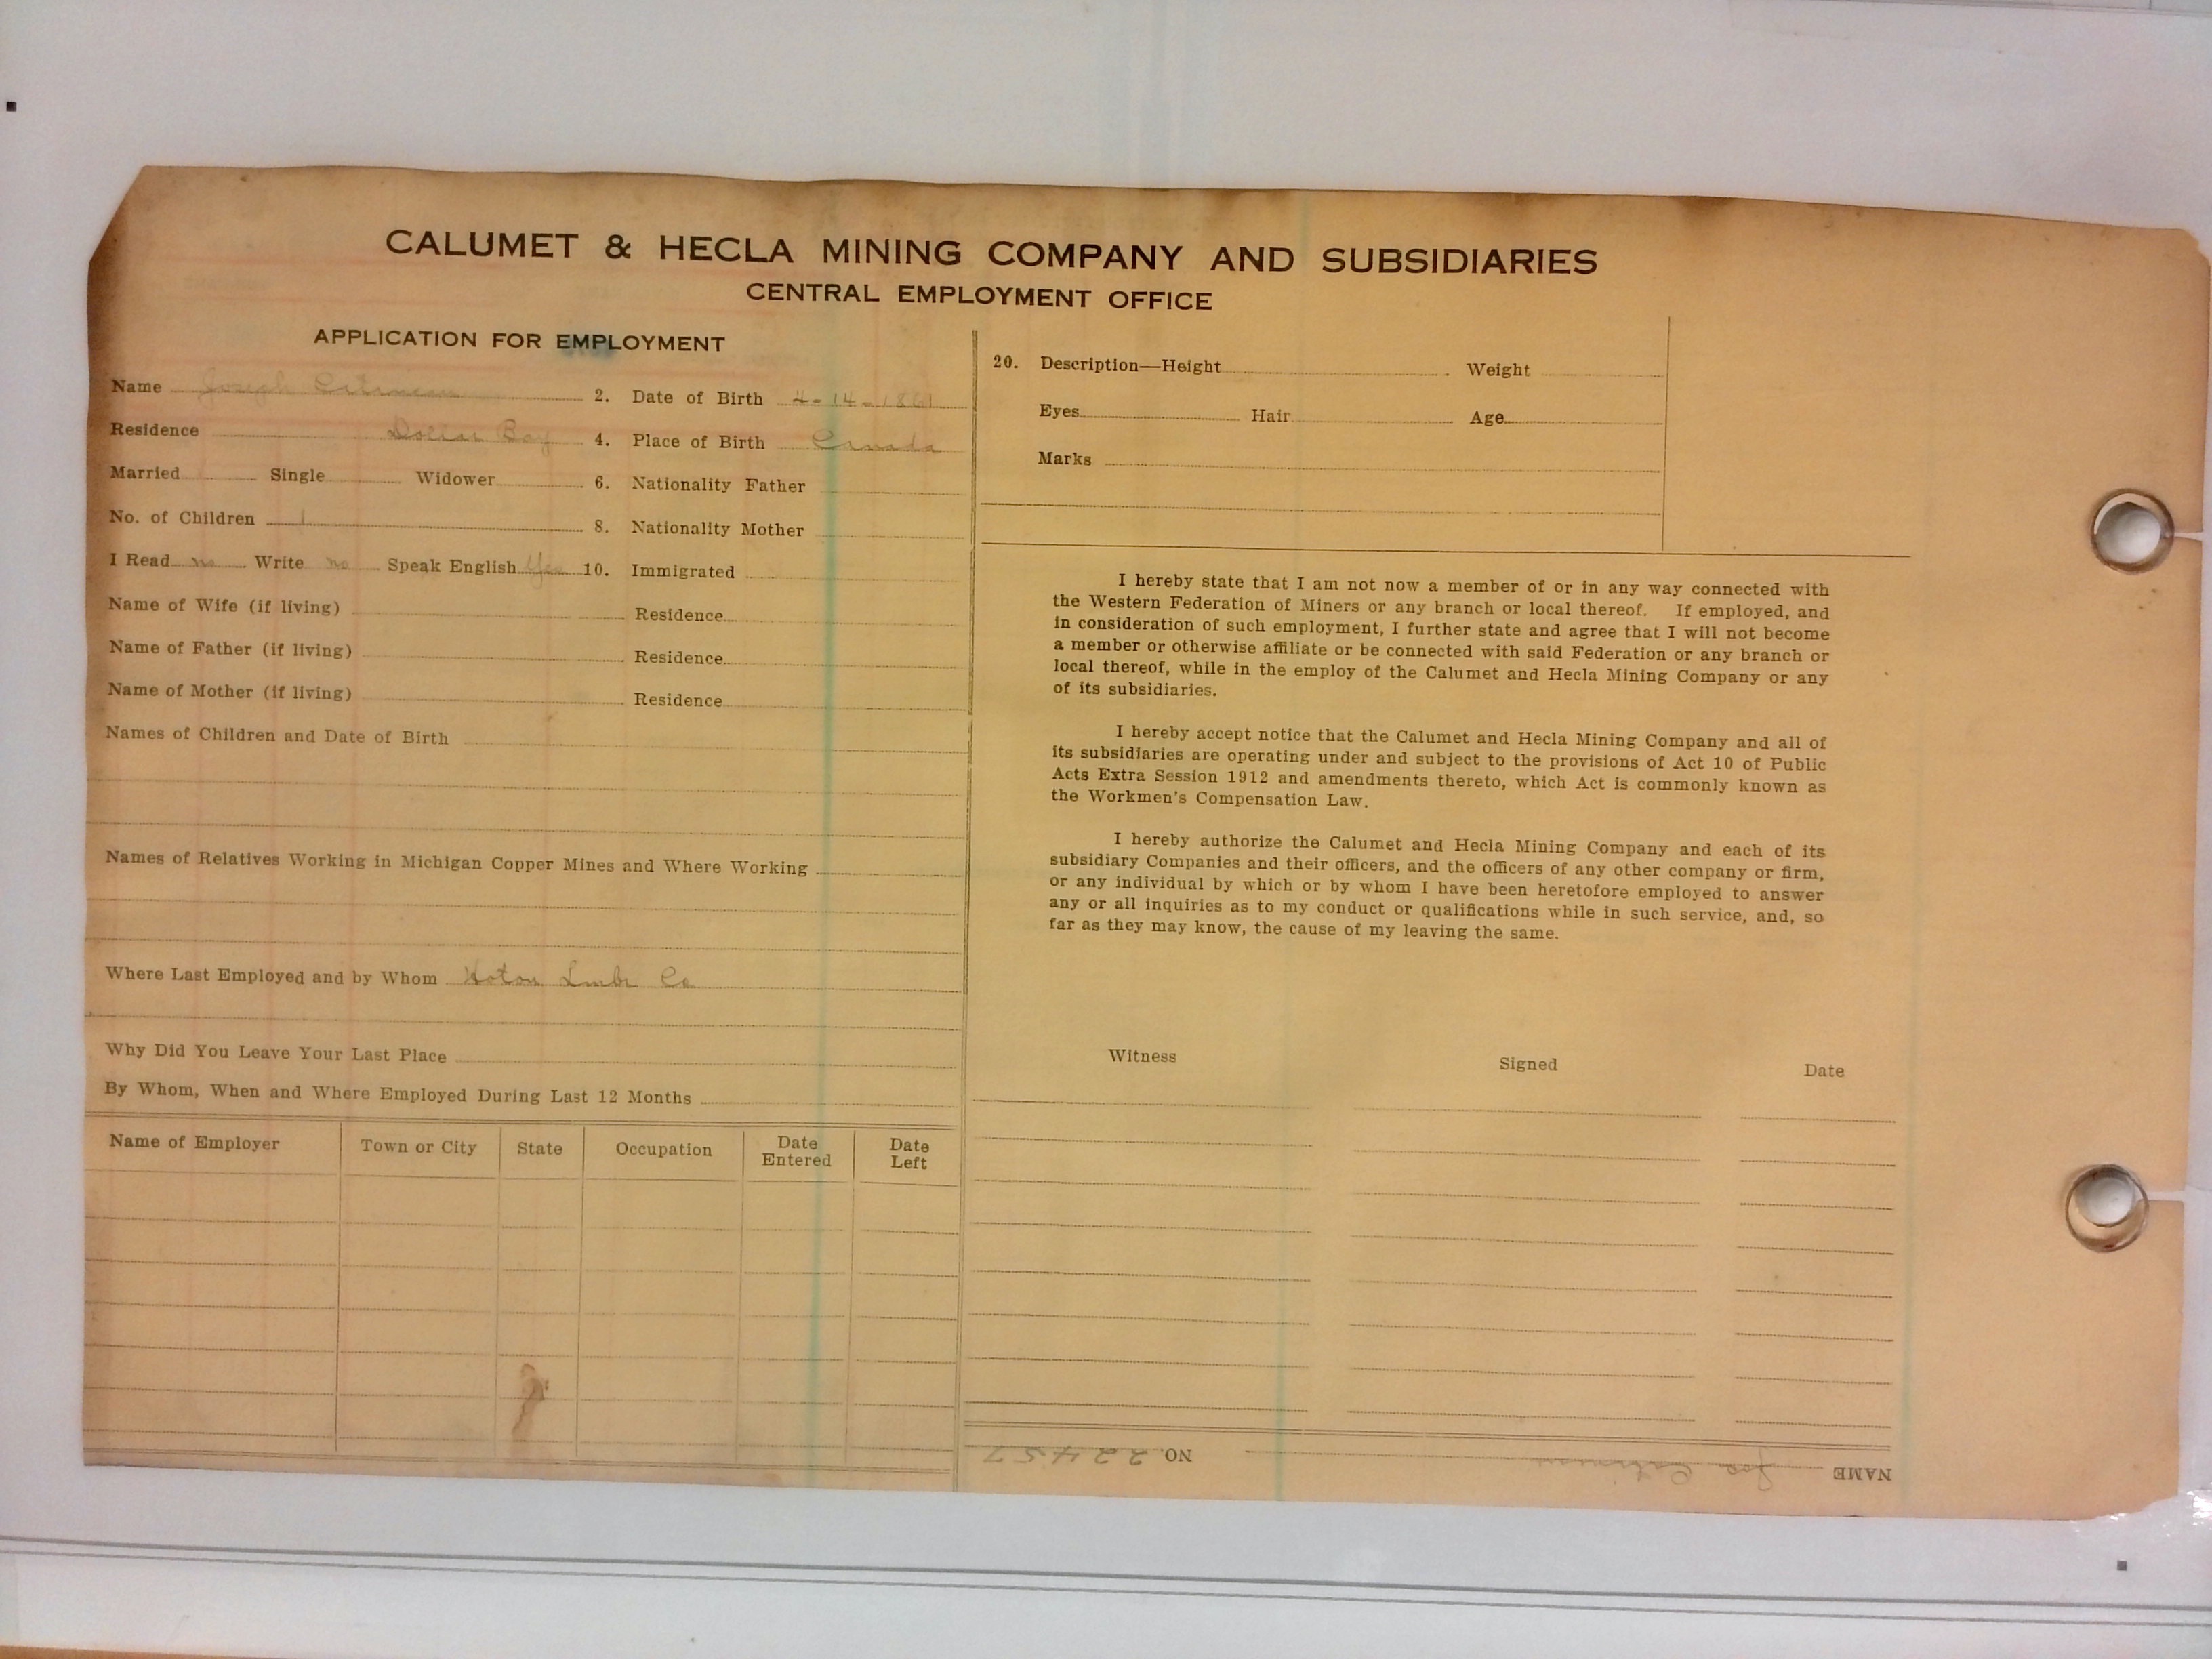 CALUMET & HECLA MINING COMPANY AND SUBSIDIARIES
CENTRAL EMPLOYMENT OFFICE
APPLICATION FOR EMPLOYMENT
Name Joseph
2. Date of Birth 4-14-1861
Residence Dollar Bay
4. Place of Birth Canada
Married Single Widower
6. Nationality Father
No. of Children 1
8. Nationality Mother
I Read no Write no Speak English Yes
10. Immigrated
Name of Wife (if living) Residence
Name of Father (if living) Residence
Name of Mother (if living) Residence
Names of Children and Date of Birth
Names of Relatives Working in Michigan Copper Mines and Where Working
Where Last Employed and by Whom Hoton Lmbr Co
Why Did You Leave Your Last Place
By Whom, When and Where Employed During Last 12 Months
Name of Employer Town or City State Occupation Date Entered Date Left
20. Description—Height Weight
Eyes Hair Age
Marks
I hereby state that I am not now a member of or in any way connected with
the Western Federation of Miners or any branch or local thereof. If employed, and
in consideration of such employment, I further state and agree that I will not become
a member or otherwise affiliate or be connected with said Federation or any branch or
local thereof, while in the employ of the Calumet and Hecla Mining Company or any
of its subsidiaries.
I hereby accept notice that the Calumet and Hecla Mining Company and all of
its subsidiaries are operating under and subject to the provisions of Act 10 of Public
Acts Extra Session 1912 and amendments thereto, which Act is commonly known as
the Workmen's Compensation Law.
I hereby authorize the Calumet and Hecla Mining Company and each of its
subsidiary Companies and their officers, and the officers of any other company or firm,
or any individual by which or by whom I have been heretofore employed to answer
any or all inquiries as to my conduct or qualifications while in such service, and, so
far as they may know, the cause of my leaving the same.
Witness Signed Date
NAME Joe
NO. 22457